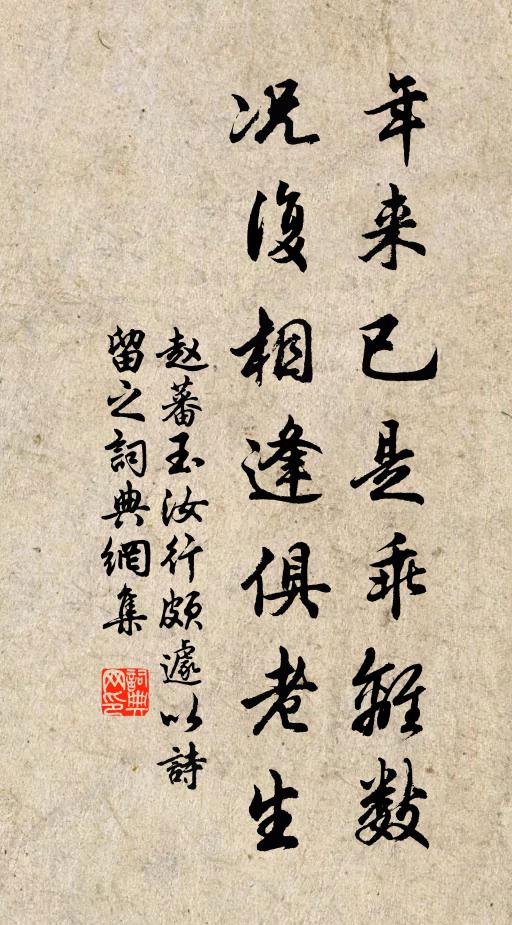 年来已是乖離数
况復相逢俱老生
赵蕃玉汝行頗遽以詩
留之詞典網集
詞典
网印